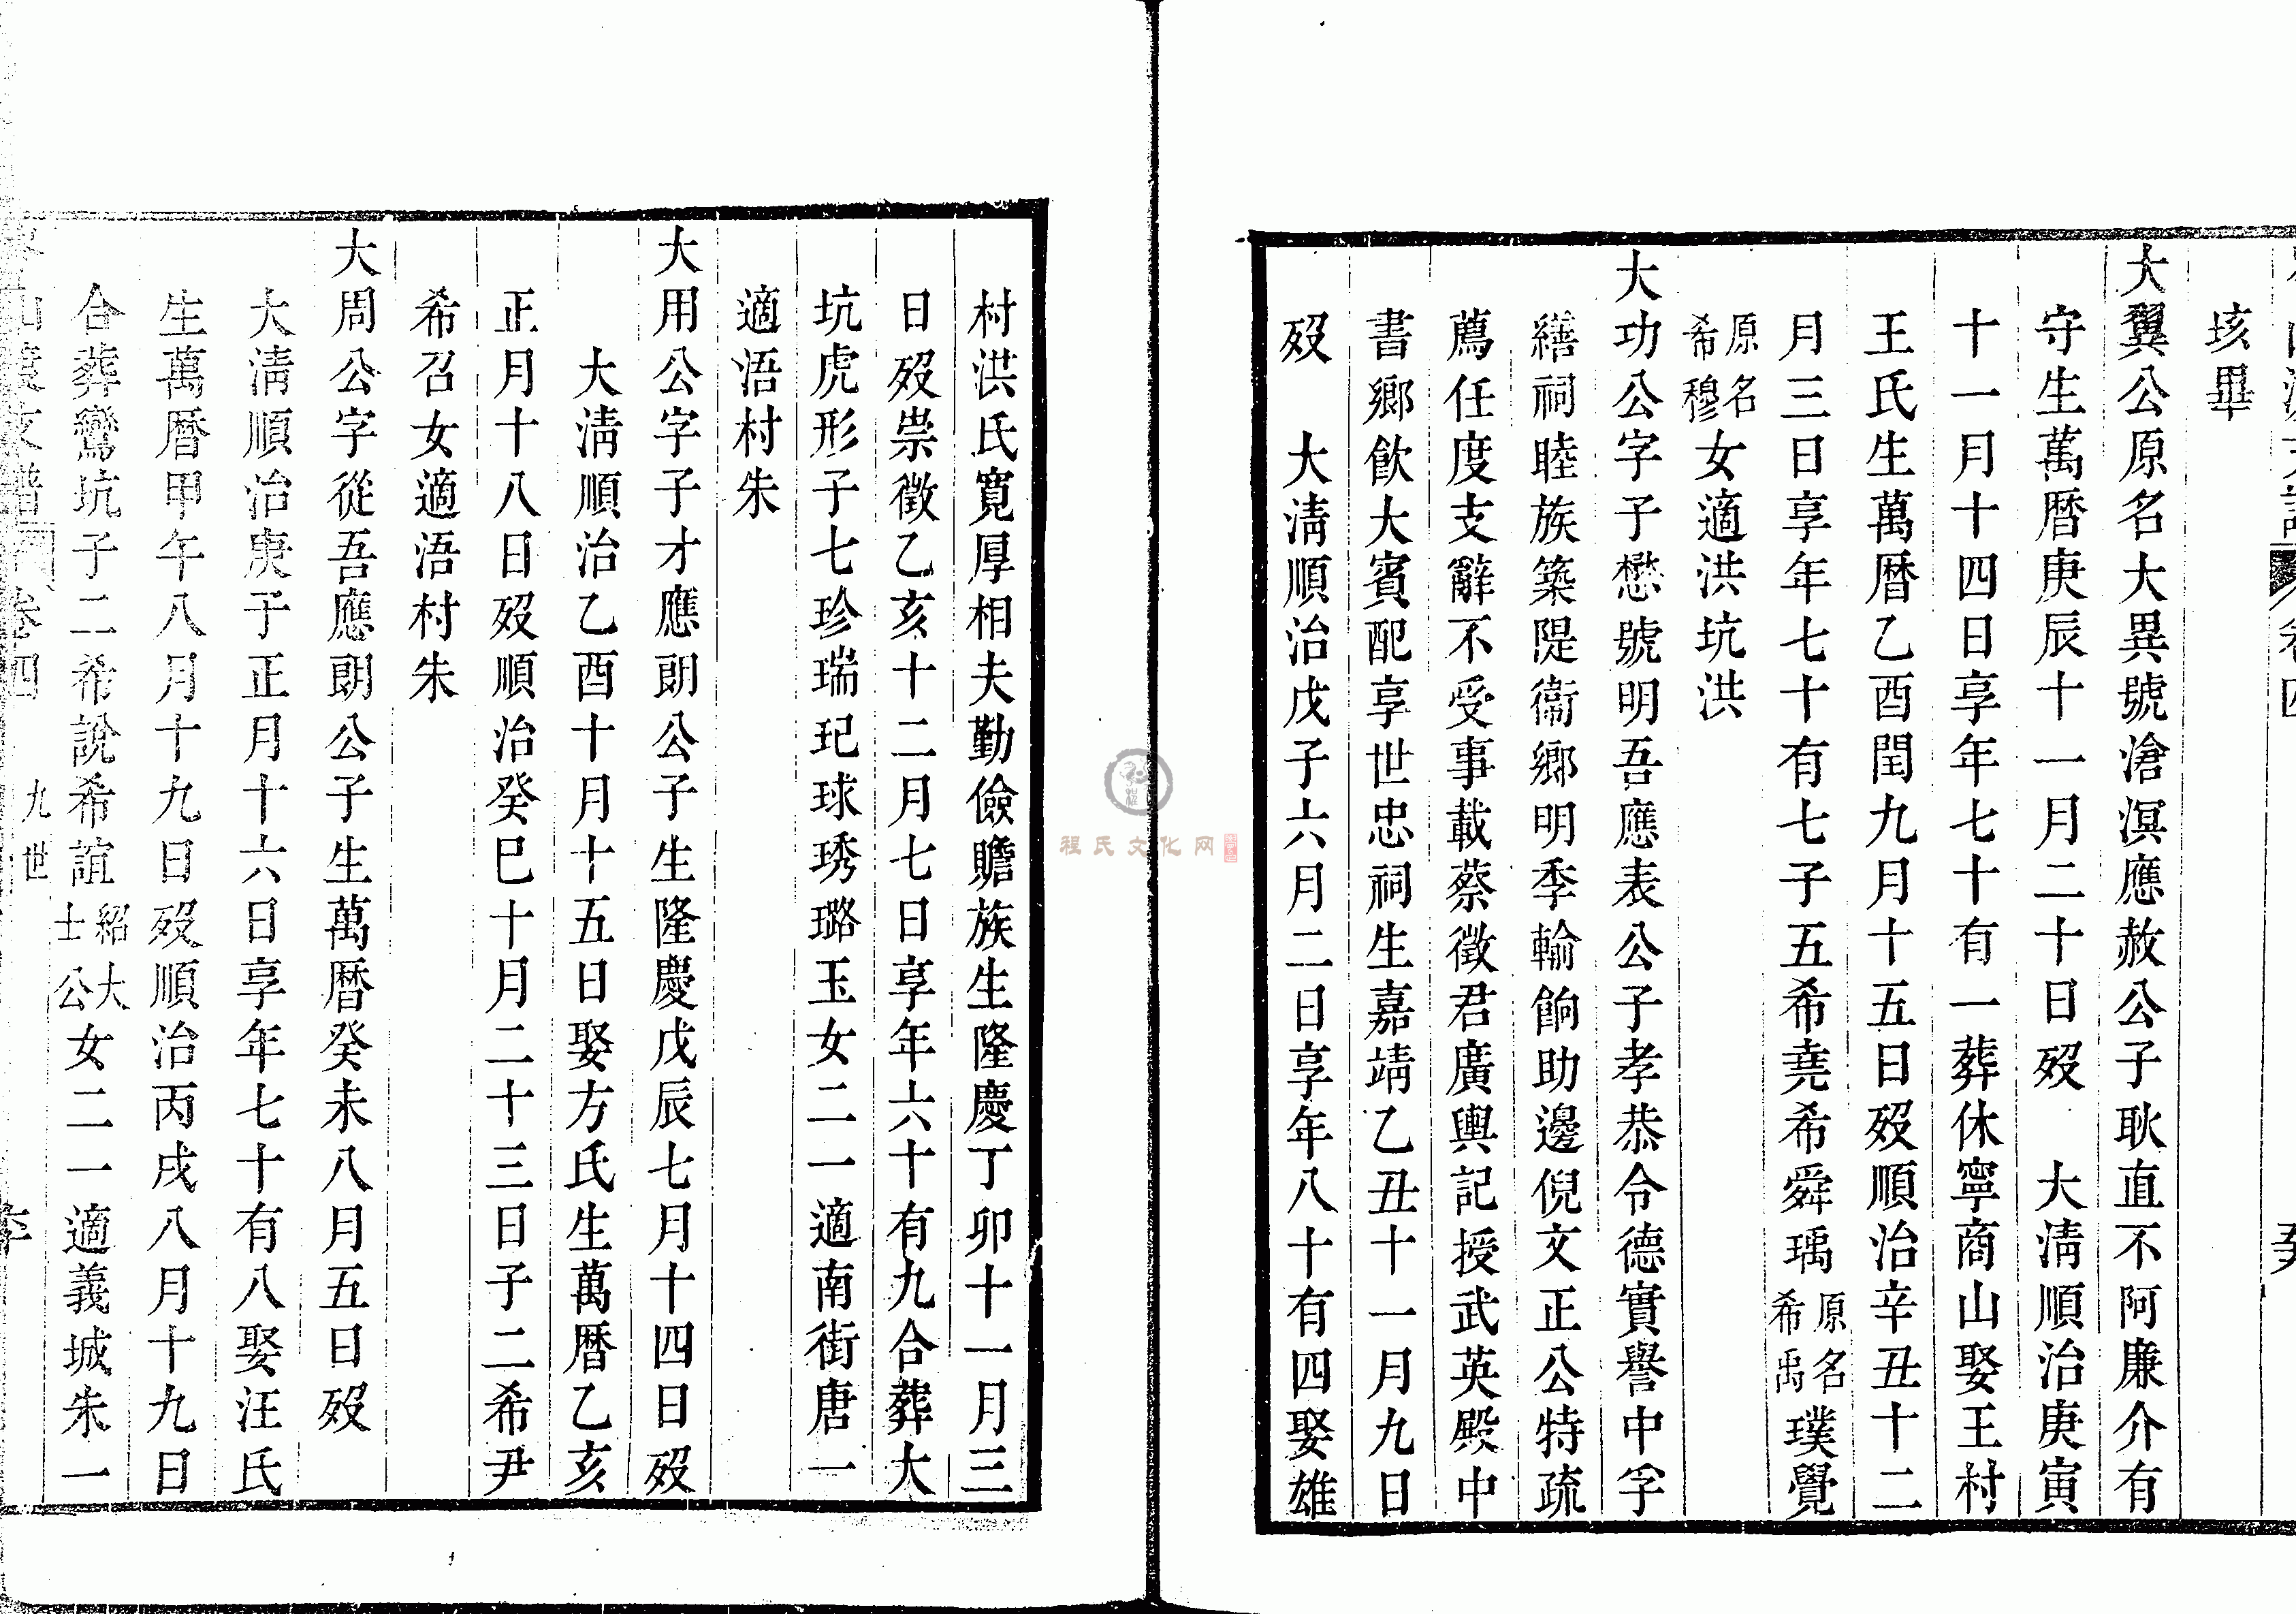 垓畢
大翼公原名大異號滄溟應赦公子耿直不阿廉介有
守生萬曆庚辰十一月二十日歿　大清順治庚寅
十一月十四日享年七十有一葬休寧商山娶王村
王氏生萬曆乙酉閏九月十五日歿順治辛丑十二
月三日享年七十有七子五希堯希舜瑀原名希禹璞覺
原名希穆女適洪坑洪
大功公字子懋號明吾應表公子孝恭令德實譽中孚
繕祠睦族築隄衞鄉明季輸餉助邊倪文正公特疏
薦任度支辭不受事載蔡徵君廣輿記授武英殿中
書鄉飲大賓配享世忠祠生嘉靖乙丑十一月九日
歿　大清順治戊子六月二日享年八十有四娶雄
村洪氏寬厚相夫勤儉贍族生隆慶丁卯十一月三
日歿崇徵乙亥十二月七日享年六十有九合葬大
坑虎形子七珍瑞玘球琇璐玉女二一適南街唐一
適浯村朱
大用公字子才應朗公子生隆慶戊辰七月十四日歿
大清順治乙酉十月十五日娶方氏生萬曆乙亥
正月十八日歿順治癸巳十月二十三日子二希尹
希召女適浯村朱
大周公字從吾應朗公子生萬曆癸未八月五日歿
大清順治庚子正月十六日享年七十有八娶汪氏
生萬曆甲午八月十九日歿順治丙戌八月十九日
合葬鸞坑子二希說希誼紹大士公女二一適義城朱一
支譜　卷四　九世
程氏文化网